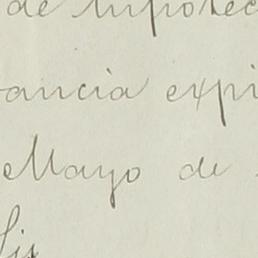 de hipotec
ancia expi
Mayo de